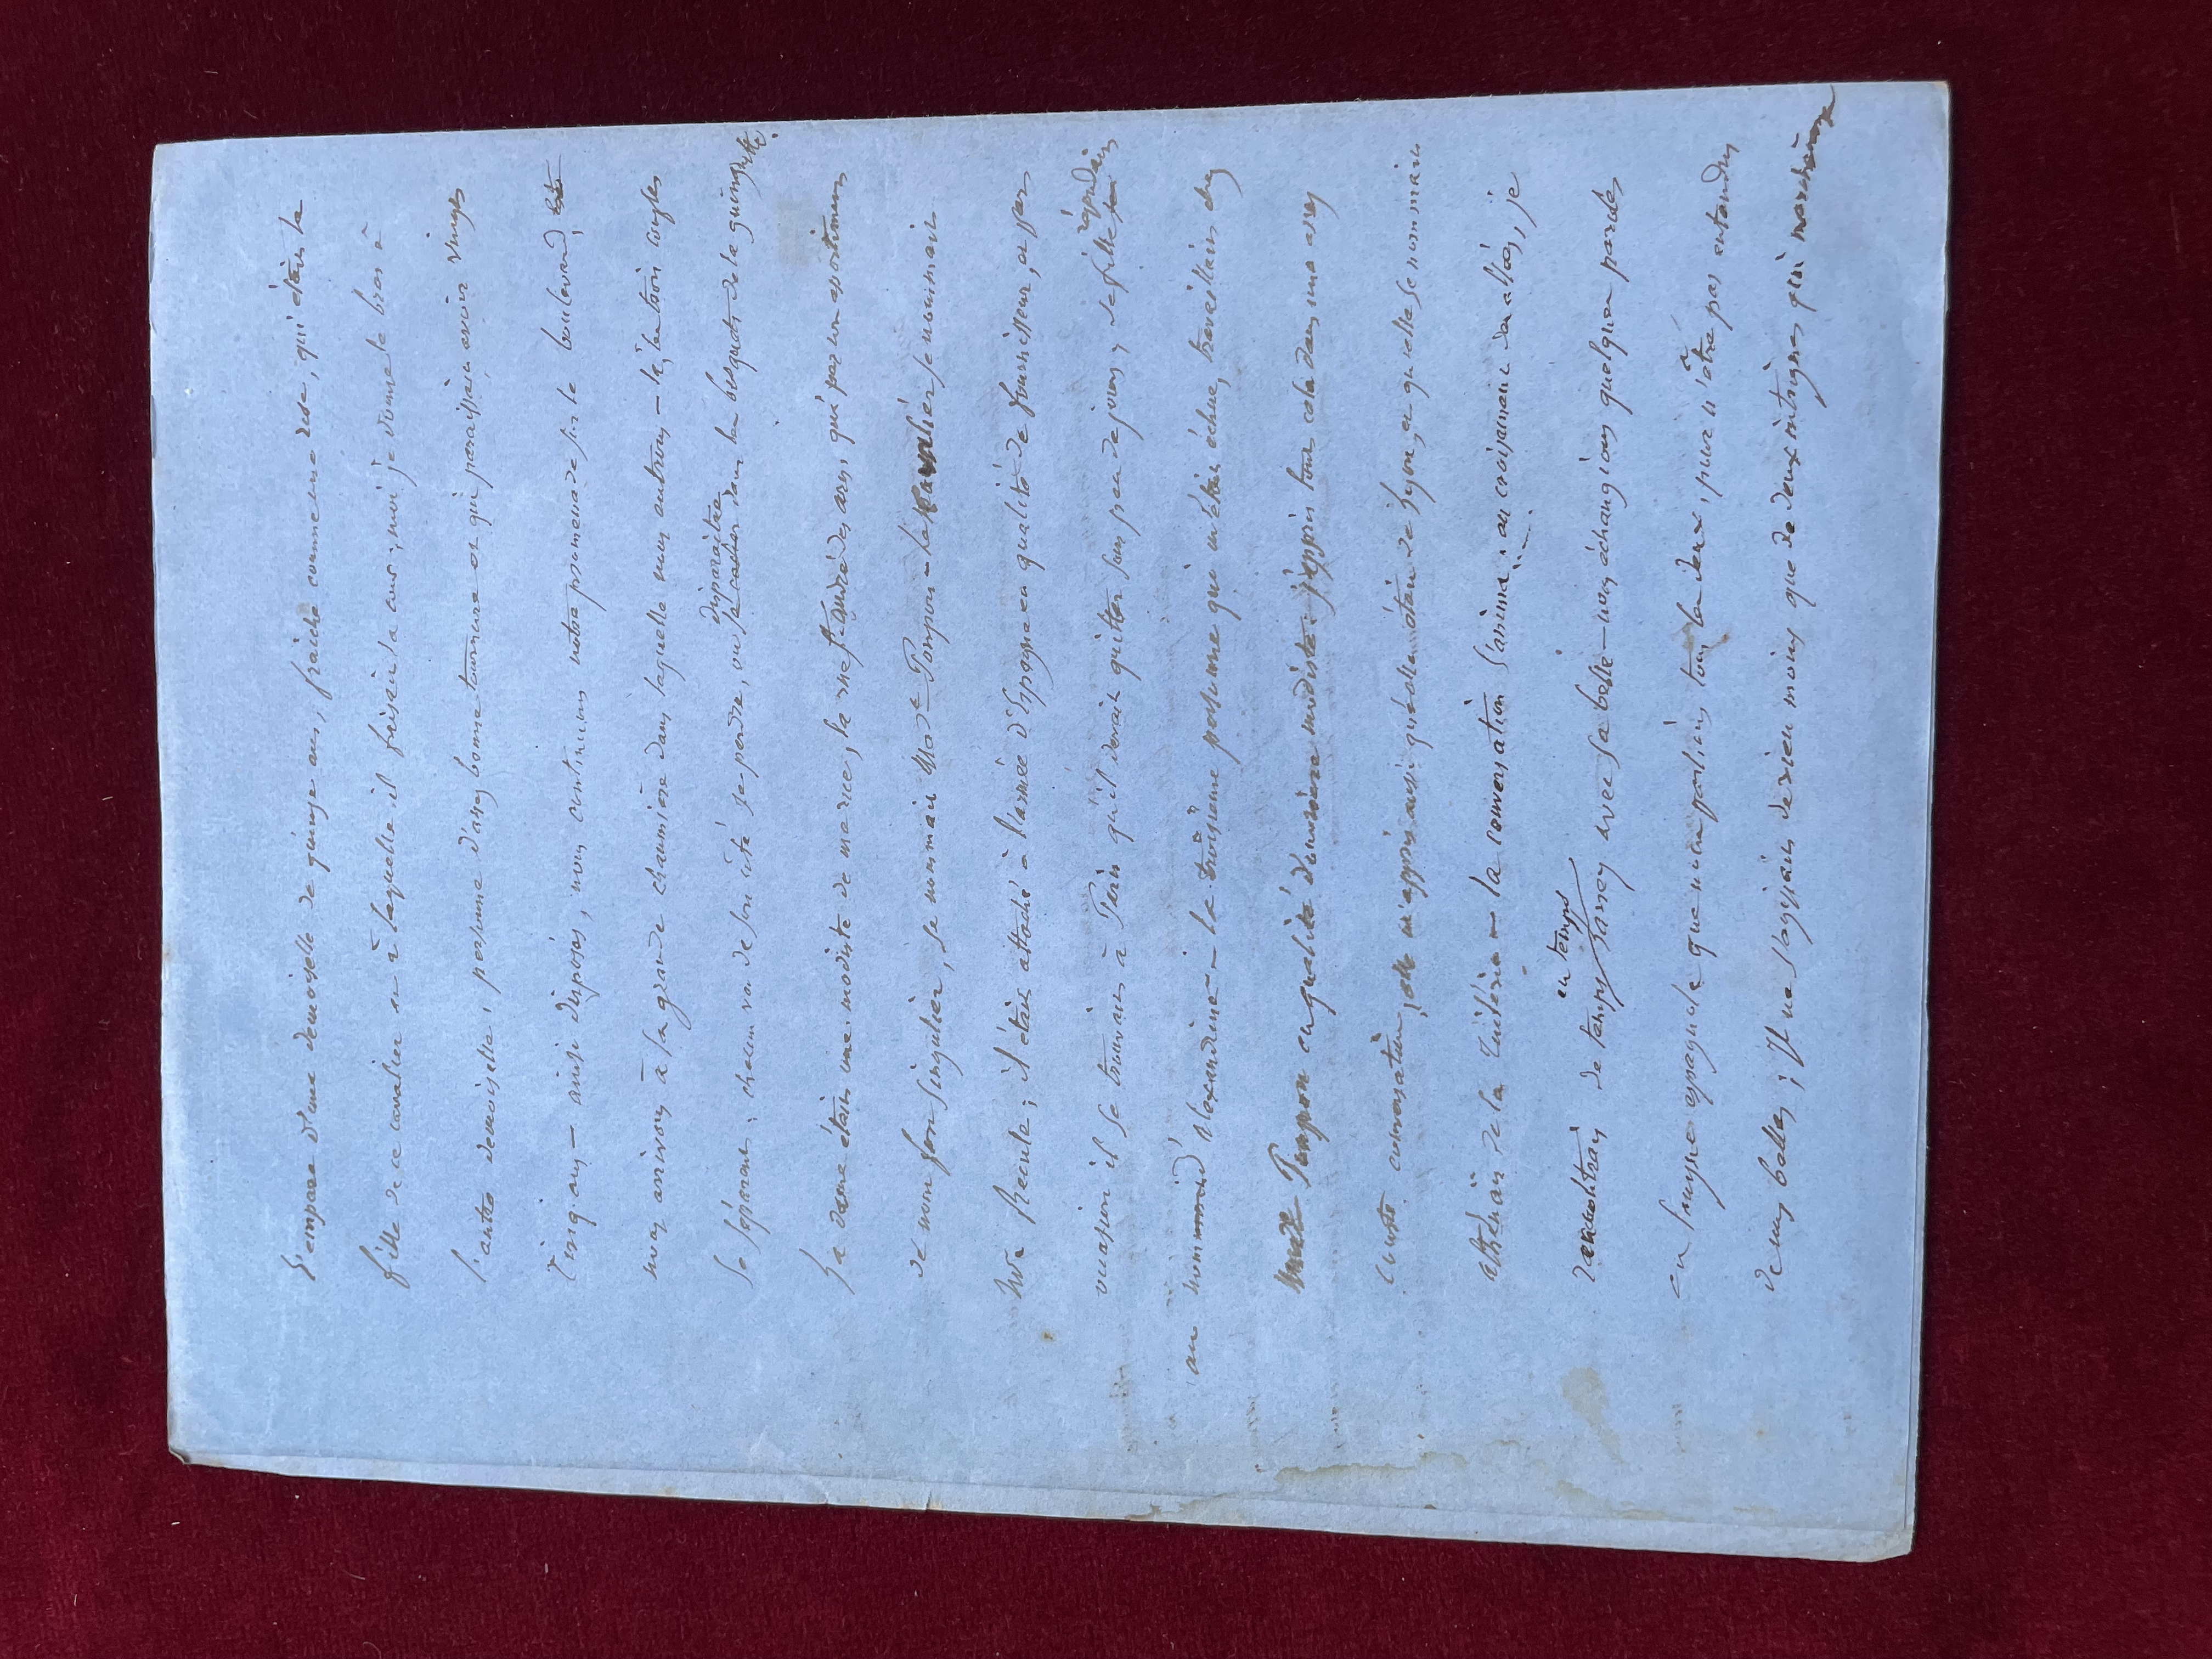 s'empara d'une demoiselle de quinze ans, fraiche comme une rose, qui était la
fille de ce cavalier et à laquelle il faisait la cour; moi je donnai le bras à
l'autre demoiselle, personne d'assez bonne tournure et qui paraissait avoir vingt
cinq ans — ainsi disposés, nous continuons notre promenade sur le boulevard,
nous arrivons à la grande chaumière dans laquelle nous entrons — là, les trois couples
disparaitre
se séparent; chacun va de son côté se perdre, ou se cacher dans les bosquets de la guinguette.
La dame était une modiste de la rue St André des arts, qui par un
de nom fort singulier, se nommait Mde Pompon — le cavalier se nommait
Mr Recule; il était attaché à l'armée d'Espagne en qualité de fournisseur, et par
occasion il se trouvait à Paris qu'il devait quitter sous peu de jours, sa fille
répondait
au nommait d'alexandrine — la troisième personne qui m'était échue, travaillait chez
Mde Pompon en qualité d'ouvrière modiste. j'appris tout cela dans une assez
courte conversation, elle m'apprit aussi qu'elle était de Lyon, et qu'elle se nommait
de la — la conversation s'anima; en croisant les allées, je
rencontrais de temps en temps avec sa belle — nous échangions quelques paroles
en langue espagnole que nous parlions tous les deux, pour n'être pas entendus
de nos belles; Il ne s'agissait de rien moins que de deux intrigues qui